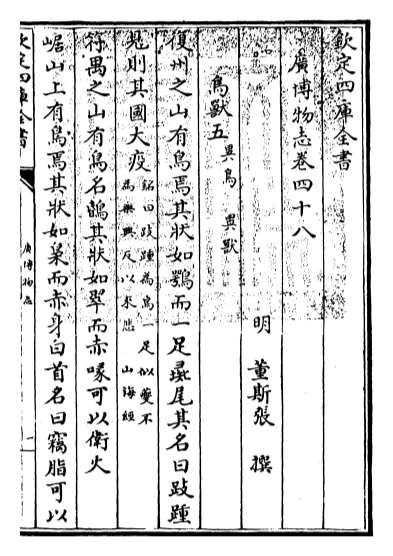 欽定四庫全書
廣博物志卷四十八
明 董斯張 撰
鳥獸五 異鳥 異獸
復州之山有鳥焉其狀如鴞而一足彘尾其名曰跂踵
見則其國大疫
銘曰跂踵為鳥一足似夔不
為樂興反以來悲 山海經
符禺之山有鳥名鴖其狀如翠而赤喙可以衛火
崌山上有鳥焉其狀如梟而赤身白首名曰竊脂可以
欽定四庫全書
廣博物志
一